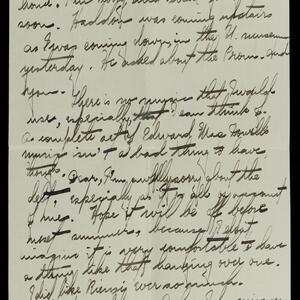 soon. Haddon was coming upstairs
as I was coming down in the U. museum
yesterday. He asked about the Brown. and
you.
There's no music that I would
use, especially that I can think of
a complete set of Edward Mac Dowell's
music isn't a bad thing to have
Dear, I'm awfully sorry about the
debt, especially as it's all on account
of me. Hope it will be all before
next summer, because I don't
imagine it is very comfortable to have
a thing like that hanging over one.
I did like Rienzi ever so much.